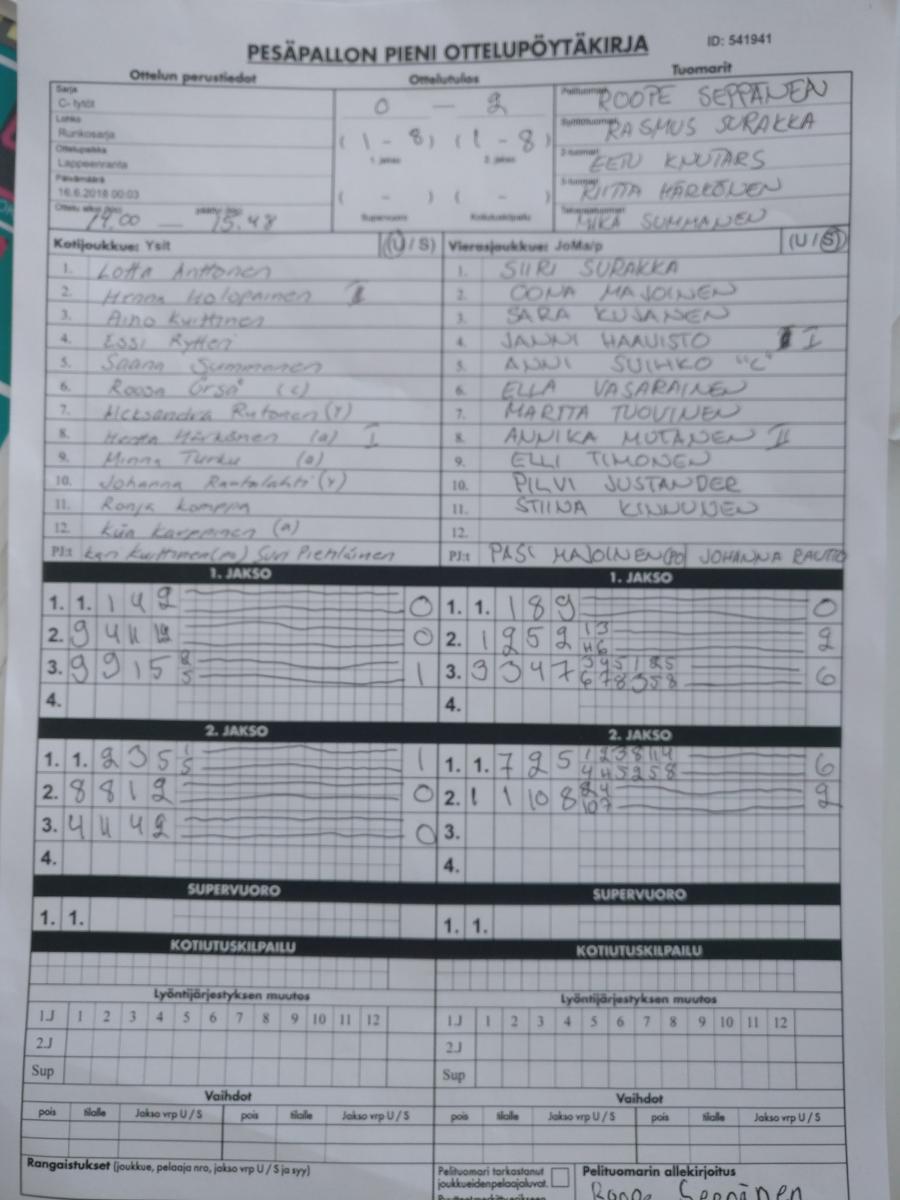 PESÄPALLON PIENI OTTELUPÖYTÄKIRJA
ID: 541941
Ottelun perustiedot
Ottelutulos
Tuomarit
Sarja
C- tytöt
Lohko
Runkosarja
Ottelupaikka
Lappeenranta
Päivämäärä
16.6.2018 00:03
0 — 2
(1 - 8) (1 - 8)
1. jakso 2. jakso
( - ) ( - )
Supervuoro Kotiutuskilpailu
ROOPE SEPPÄNEN
RASMUS SURAKKA
EETU KNUTARS
RIITTA HÄRKÖNEN
MIKA SUMMANEN
14.00 — 15.48
Kotijoukkue: Ysit (U / S)
1. Lotta Anttonen
2. Henna Holopainen I
3. Aino Kurttinen
4. Essi Rytten
5. Saana Summanen
6. Roosa Örså (c)
7. Aleksandra Rutonen (Y)
8. Hertta Härkönen (a) I
9. Minna Turku (a)
10. Johanna Rautalahti (Y)
11. Ronja Komppa
12. Karppinen (a)
PJ:t
Vierasjoukkue: JoMa/p (U / S)
1. SIIRI SURAKKA
2. OONA MAJOINEN
3. SARA KUJANEN
4. JANNI HAAVISTO I
5. ANNI SUIHKO "C"
6. ELLA VASARAINEN
7. MARITA TUOVINEN
8. ANNIKA MUTANEN II
9. ELLI TIMONEN
10. PILVI JUSTANDER
11. STIINA KINNUNEN
12.
PJ:t PASI MAJOINEN (PJ) JOHANNA RAUTIO
1. JAKSO
1. 1. 1 4 2 0
2. 9 4 11 12 0
3. 9 9 1 5 8 5 1
4.
1. JAKSO
1. 1. 1 8 9 0
2. 1 2 5 2 1 3 4 6 2
3. 3 3 4 7 6
4.
2. JAKSO
1. 1. 2 3 5 1 5 1
2. 8 8 1 2 0
3. 4 11 4 2 0
4.
2. JAKSO
1. 1. 7 2 5 6
2. 1 1 10 8 2 4 10 7 2
3.
4.
SUPERVUORO
1. 1.
SUPERVUORO
1. 1.
KOTIUTUSKILPAILU
KOTIUTUSKILPAILU
Lyöntijärjestyksen muutos
1J 1 2 3 4 5 6 7 8 9 10 11 12
2J
Sup
Lyöntijärjestyksen muutos
1J 1 2 3 4 5 6 7 8 9 10 11 12
2J
Sup
Vaihdot
pois tilalle Jakso vrp U / S pois tilalle Jakso vrp U / S
Vaihdot
pois tilalle Jakso vrp U / S pois tilalle Jakso vrp U / S
Rangaistukset (joukkue, pelaaja nro, jakso vrp U / S ja syy)
Pelituomari tarkastanut
joukkueidenpelaajaluvat.
Pelituomarin allekirjoitus
Roope Seppänen